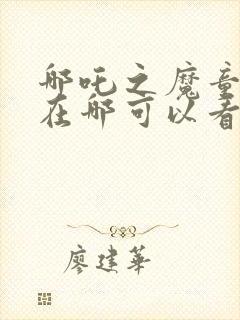 哪吒之魔童
在哪可以看
廖建华